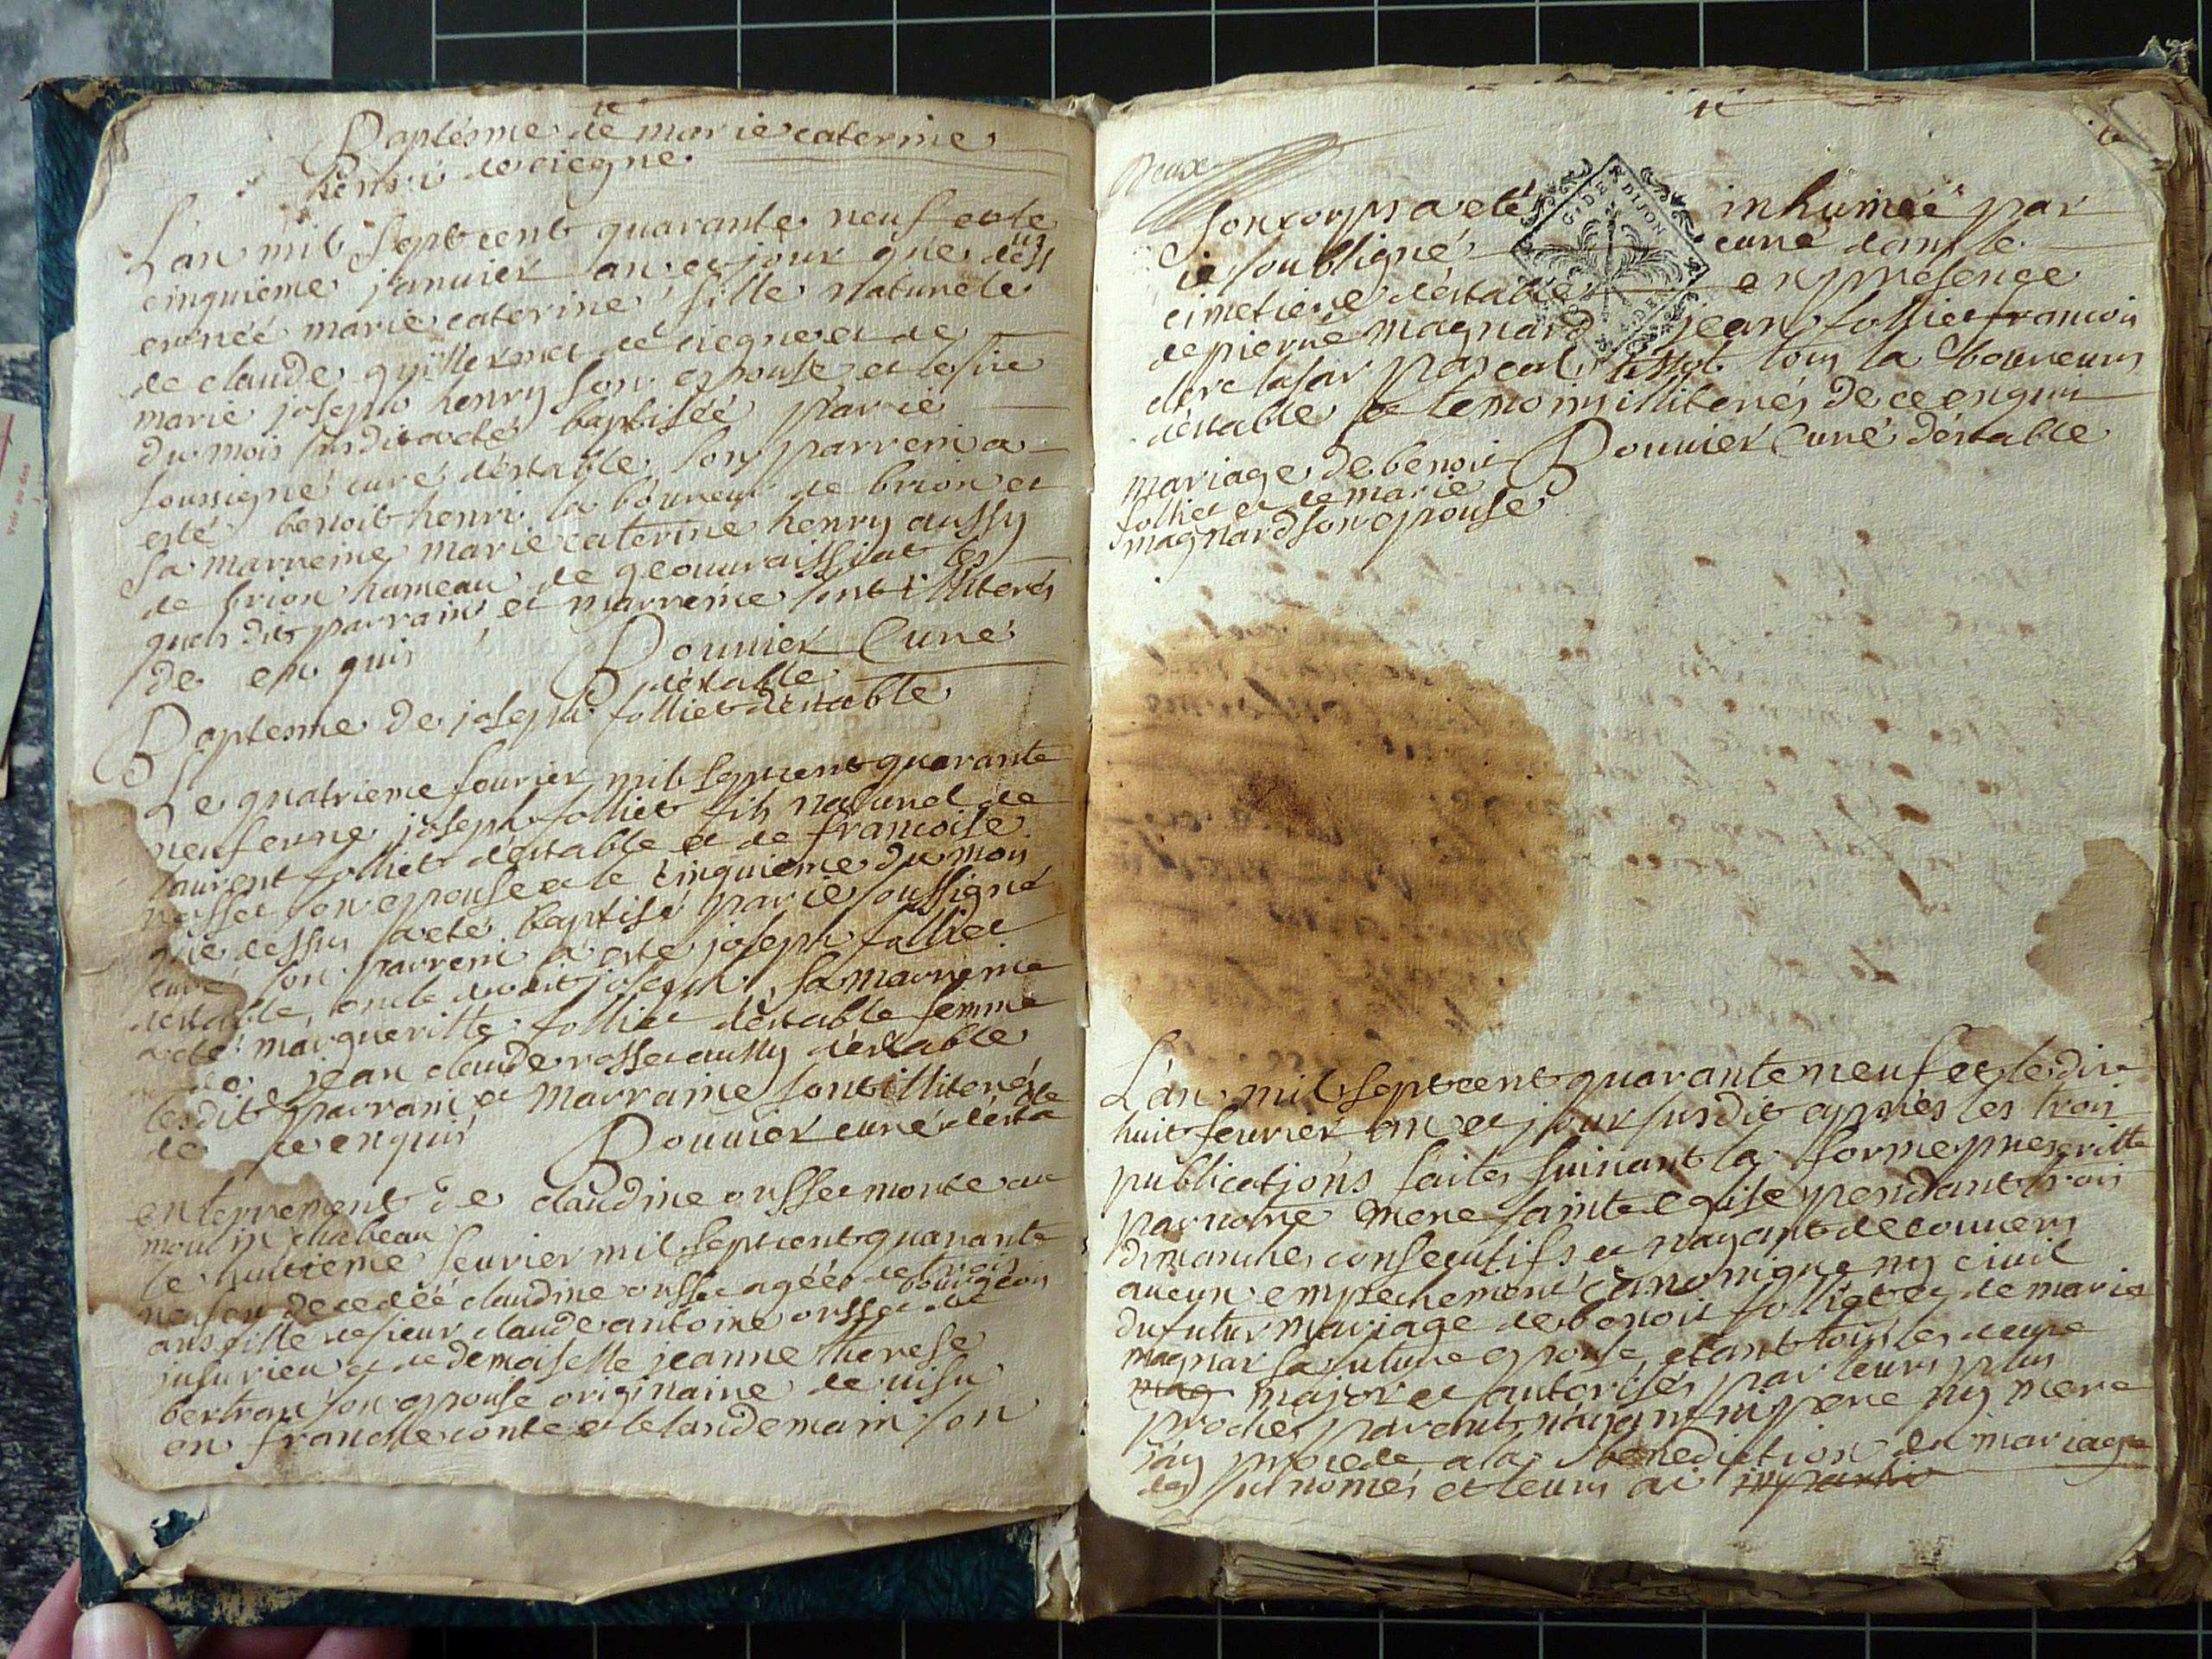 Baptésme de marie caterine
henri de ciegne.
L'an mil sept cent quarante neuf et le
cinquieme janvier an et jour que dess us
est née marie caterine fille naturele
de claude guillermet de ciegne et de
marie joseph henry son epouse et le sixe
du mois susdit a eté baptisée par ie
soussigné curé déstable son parrein a
esté benoit henri laboureur de brion et
sa marreine marie caterine henry aussy
de brion hameau de geouvraissiat les
quels dits parrain et marreine sont illiterés
de enquis
Bouvier Curé
déstable
Baptesme de joseph folliet déstable
Le quatrieme fevrier mil sept cent quarante
neuf est né joseph folliet fils naturel de
laurent folliet déstable et de francoise
rosset son epouse et le cinquieme du mois
que dessus a eté baptisé par ie soussigné
curé son parrein a esté joseph folliet
déstable, oncle dudit joseph, sa marreine
a eté margueritte folliet déstable femme
de jean claude rosset aussy déstable
lesdits parrain et marraine sont illiterés
de ce enquis Bouvier curé désta ble
enterrement de claudine orsset morte au
moulin chabeau
le huitieme fevrier mil sept cent quarante
neuf est decedéé claudine orsset agéé de trois
ans fille de sieur claude antoine orsset bourgeois de
jusurieu et de demoiselle jeanne therese
bertran son epouse originaire de
en franche conte et le landemain son
deux
G. DE DIJON
son corps a eté inhuméé par
ie soubsigné curé dans le
cimetiere déstable en presence
de pierre magnard jean folliet francois
pascal tous laboureurs
déstable et temoins illiterés de ce enquis
Bouvier Curé déstable
mariage de benoit
folliet et de marie
magnard son epouse
L'an mil sept cent quarante neuf et le dix
huit fevrier an et jour susdit apprès les trois
publications faites suivant la forme prescritte
par notre mere sainte eglise pendant trois
dimanches consecutifs et n'ayant decouvers
aucun empechement canonique ny civil
du futur mariage de benoit folliet et de marie
magnar sa future epouse, etant tous les deux
mag major et autorisés par leurs plus
proches parents n'ayant ny pere ny mere
j'ay procede a la benediction du mariage
des sus només et leurs ai